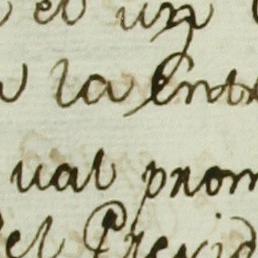 el un
la Entr
ual prom
el Presid